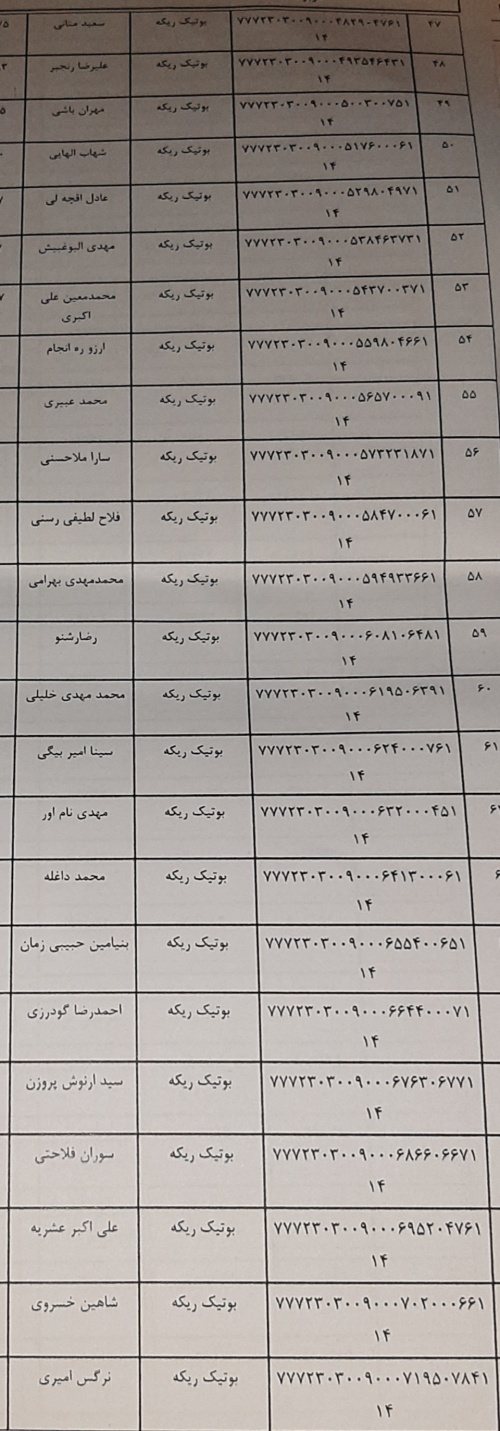 ۴۷ ۷۷۷۲۳۰۳۰۰۹۰۰۰۴۸۲۹۰۴۷۶۱ بوتیک ریکه سعید منانی
۱۴
۴۸ ۷۷۷۲۳۰۳۰۰۹۰۰۰۴۹۳۵۴۶۴۳۱ بوتیک ریکه علیرضا رنجبر
۱۴
۴۹ ۷۷۷۲۳۰۳۰۰۹۰۰۰۵۰۰۳۰۰۷۵۱ بوتیک ریکه مهران باشی
۱۴
۵۰ ۷۷۷۲۳۰۳۰۰۹۰۰۰۵۱۷۶۰۰۰۶۱ بوتیک ریکه شهاب الهایی
۱۴
۵۱ ۷۷۷۲۳۰۳۰۰۹۰۰۰۵۲۹۸۰۴۹۷۱ بوتیک ریکه عادل اقچه لی
۱۴
۵۲ ۷۷۷۲۳۰۳۰۰۹۰۰۰۵۳۸۴۶۳۷۳۱ بوتیک ریکه مهدی البوغبیش
۱۴
۵۳ ۷۷۷۲۳۰۳۰۰۹۰۰۰۵۴۳۷۰۰۳۷۱ بوتیک ریکه محمدمعین علی
۱۴ اکبری
۵۴ ۷۷۷۲۳۰۳۰۰۹۰۰۰۵۵۹۸۰۴۶۶۱ بوتیک ریکه ارزو ره انجام
۱۴
۵۵ ۷۷۷۲۳۰۳۰۰۹۰۰۰۵۶۵۷۰۰۰۹۱ بوتیک ریکه محمد عبیری
۱۴
۵۶ ۷۷۷۲۳۰۳۰۰۹۰۰۰۵۷۳۲۳۱۸۷۱ بوتیک ریکه سارا ملاحسنی
۱۴
۵۷ ۷۷۷۲۳۰۳۰۰۹۰۰۰۵۸۴۷۰۰۰۶۱ بوتیک ریکه فلاح لطیفی رسنی
۱۴
۵۸ ۷۷۷۲۳۰۳۰۰۹۰۰۰۵۹۴۹۳۳۶۶۱ بوتیک ریکه محمدمهدی بهرامی
۱۴
۵۹ ۷۷۷۲۳۰۳۰۰۹۰۰۰۶۰۸۱۰۶۴۸۱ بوتیک ریکه رضارشنو
۱۴
۶۰ ۷۷۷۲۳۰۳۰۰۹۰۰۰۶۱۹۵۰۶۳۹۱ بوتیک ریکه محمد مهدی خلیلی
۱۴
۶۱ ۷۷۷۲۳۰۳۰۰۹۰۰۰۶۲۴۰۰۰۷۶۱ بوتیک ریکه سینا امیر بیگی
۱۴
۷۷۷۲۳۰۳۰۰۹۰۰۰۶۳۲۰۰۰۴۵۱ بوتیک ریکه مهدی نام اور
۱۴
۷۷۷۲۳۰۳۰۰۹۰۰۰۶۴۱۳۰۰۰۶۱ بوتیک ریکه محمد داغله
۱۴
۷۷۷۲۳۰۳۰۰۹۰۰۰۶۵۵۴۰۰۶۵۱ بوتیک ریکه بنیامین حبیبی زمان
۱۴
۷۷۷۲۳۰۳۰۰۹۰۰۰۶۶۴۴۰۰۰۷۱ بوتیک ریکه احمدرضا گودرزی
۱۴
۷۷۷۲۳۰۳۰۰۹۰۰۰۶۷۶۳۰۶۷۷۱ بوتیک ریکه سید ارنوش پروزن
۱۴
۷۷۷۲۳۰۳۰۰۹۰۰۰۶۸۶۶۰۶۶۷۱ بوتیک ریکه سوران فلاحتی
۱۴
۷۷۷۲۳۰۳۰۰۹۰۰۰۶۹۵۲۰۴۷۶۱ بوتیک ریکه علی اکبر عشریه
۱۴
۷۷۷۲۳۰۳۰۰۹۰۰۰۷۰۲۰۰۰۶۶۱ بوتیک ریکه شاهین خسروی
۱۴
۷۷۷۲۳۰۳۰۰۹۰۰۰۷۱۹۵۰۷۸۴۱ بوتیک ریکه نرگس امیری
۱۴